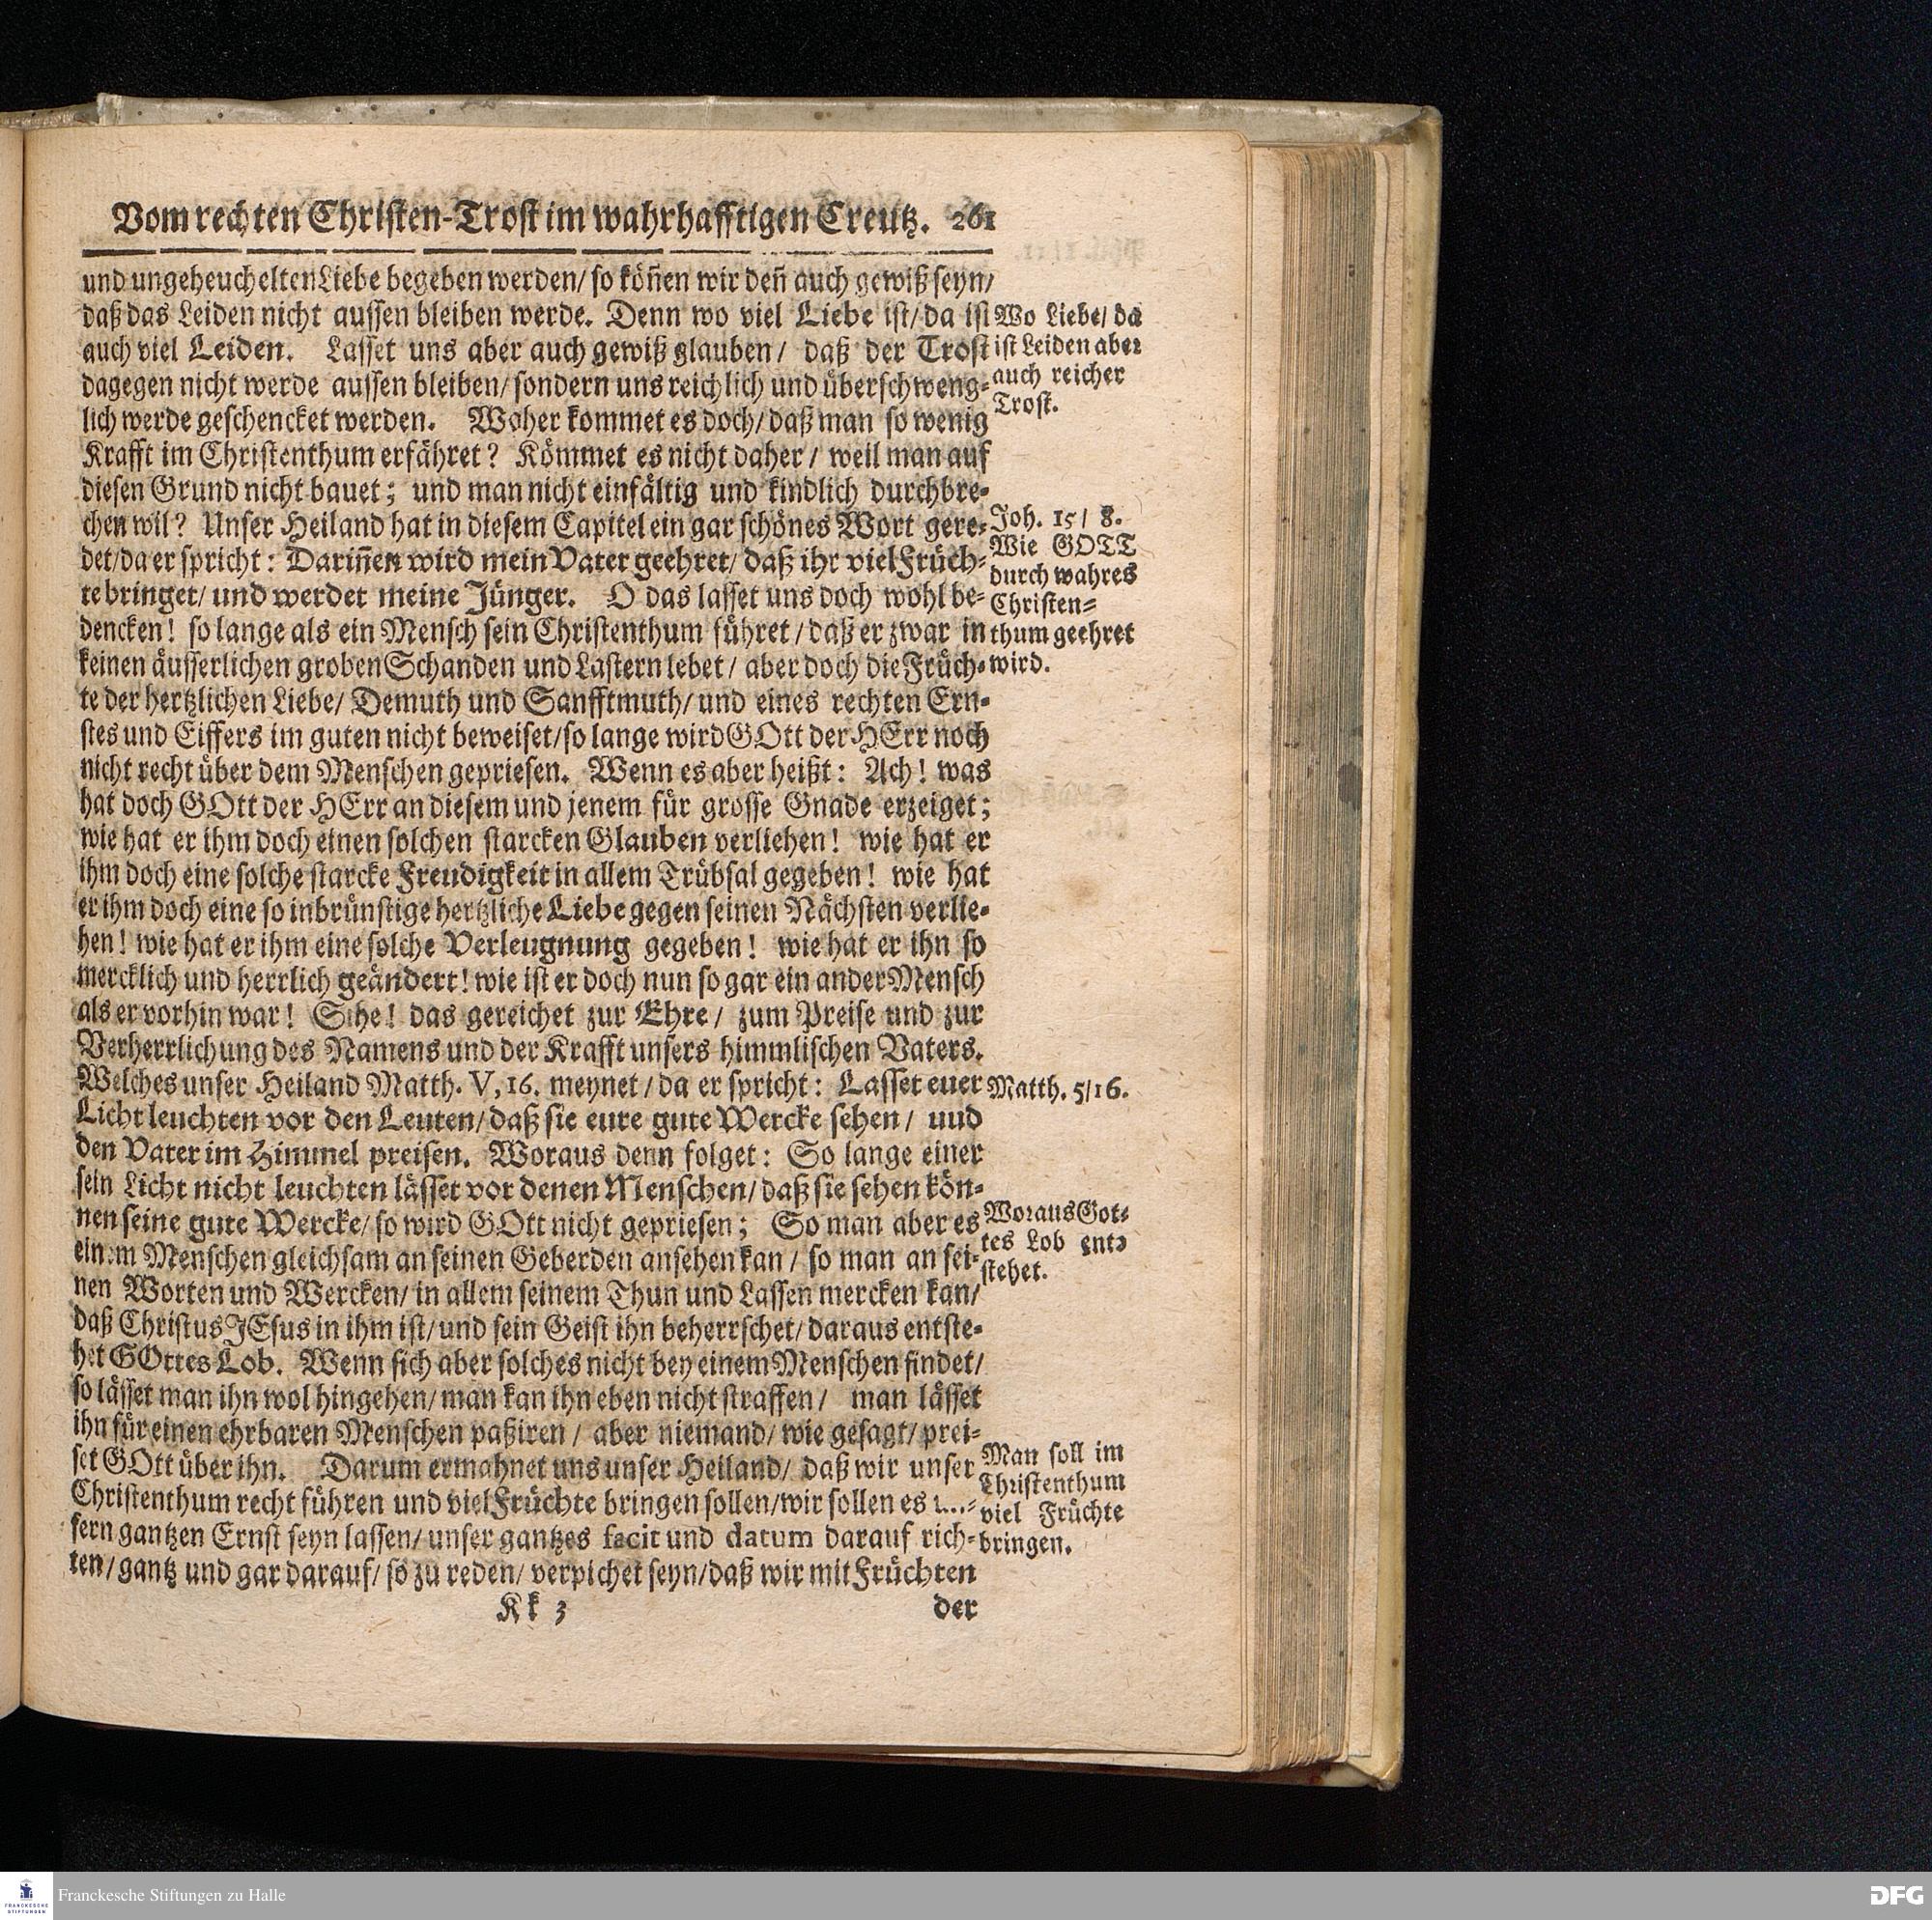 Vom rechten Christen-Trost im wahrhafftigen Creutz. 261
und ungeheuchelten Liebe begeben werden/ so köñen wir deñ auch gewiß seyn/
daß das Leiden nicht aussen bleiben werde. Denn wo viel Liebe ist/ da ist
auch viel Leiden. Lasset uns aber auch gewiß glauben/ daß der Trost
dagegen nicht werde aussen bleiben/ sondern uns reichlich und überschweng-
lich werde geschencket werden. Woher kommet es doch/ daß man so wenig
Krafft im Christenthum erfähret? Kömmet es nicht daher/ weil man auf
diesen Grund nicht bauet; und man nicht einfältig und kindlich durchbre-
chen wil? Unser Heiland hat in diesem Capitel ein gar schönes Wort gere-
det/ da er spricht: Dariñen wird mein Vater geehret/ daß ihr viel Früch-
te bringet/ und werdet meine Jünger. O das lasset uns doch wohl be-
dencken! so lange als ein Mensch sein Christenthum führet/ daß er zwar in
keinen äusserlichen groben Schanden und Lastern lebet/ aber doch die Früch-
te der hertzlichen Liebe/ Demuth und Sanfftmuth/ und eines rechten Ern-
stes und Eiffers im guten nicht beweiset/ so lange wird GOtt der HErr noch
nicht recht über dem Menschen gepriesen. Wenn es aber heißt: Ach! was
hat doch GOtt der HErr an diesem und jenem für grosse Gnade erzeiget;
wie hat er ihm doch einen solchen starcken Glauben verliehen! wie hat er
ihm doch eine solche starcke Freudigkeit in allem Trübsal gegeben! wie hat
er ihm doch eine so inbrünstige hertzliche Liebe gegen seinen Nächsten verlie-
hen! wie hat er ihm eine solche Verleugnung gegeben! wie hat er ihn so
mercklich und herrlich geändert! wie ist er doch nun so gar ein ander Mensch
als er vorhin war! Sihe! das gereichet zur Ehre/ zum Preise und zur
Verherrlichung des Namens und der Krafft unsers himmlischen Vaters.
Welches unser Heiland Matth. V, 16. meynet/ da er spricht: Lasset euer
Licht leuchten vor den Leuten/ daß sie eure gute Wercke sehen/ uud
den Vater im Himmel preisen. Woraus denn folget: So lange einer
sein Licht nicht leuchten lässet vor denen Menschen/ daß sie sehen kön-
nen seine gute Wercke/ so wird GOtt nicht gepriesen; So man aber es
einem Menschen gleichsam an seinen Geberden ansehen kan/ so man an sei-
nen Worten und Wercken/ in allem seinem Thun und Lassen mercken kan/
daß Christus JEsus in ihm ist/ und sein Geist ihn beherrschet/ daraus entste-
het GOttes Lob. Wenn sich aber solches nicht bey einem Menschen findet/
so lässet man ihn wol hingehen/ man kan ihn eben nicht straffen/ man lässet
ihn für einen ehrbaren Menschen paßiren/ aber niemand/ wie gesagt/ prei-
set GOtt über ihn. Darum ermahnet uns unser Heiland/ daß wir unser
Christenthum recht führen und viel Früchte bringen sollen/ wir sollen es
sern gantzen Ernst seyn lassen/ unser gantzes facit und datum darauf rich-
ten/ gantz und gar darauf/ so zu reden/ verpichet seyn/ daß wir mit Früchten
Kk 3 der
Wo Liebe/ da
ist Leiden aber
auch reicher
Trost.
Joh. 15/ 8.
Wie GOTT
durch wahres
Christen-
thum geehret
wird.
Matth. 5/16.
Woraus Got-
tes Lob ent-
stehet.
Man soll im
Christenthum
viel Früchte
bringen.
FRANCKESCHE
STIFTUNGEN
Franckesche Stiftungen zu Halle
DFG